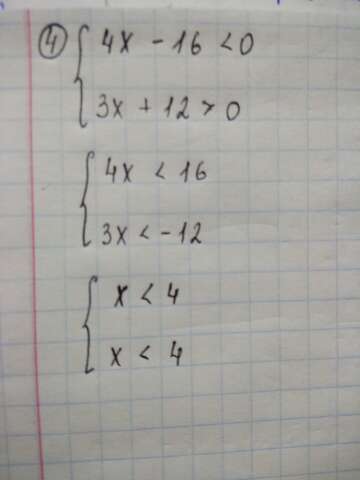 ④ { 4x - 16 < 0
3x + 12 > 0
{ 4x < 16
3x < -12
{ x < 4
x < 4